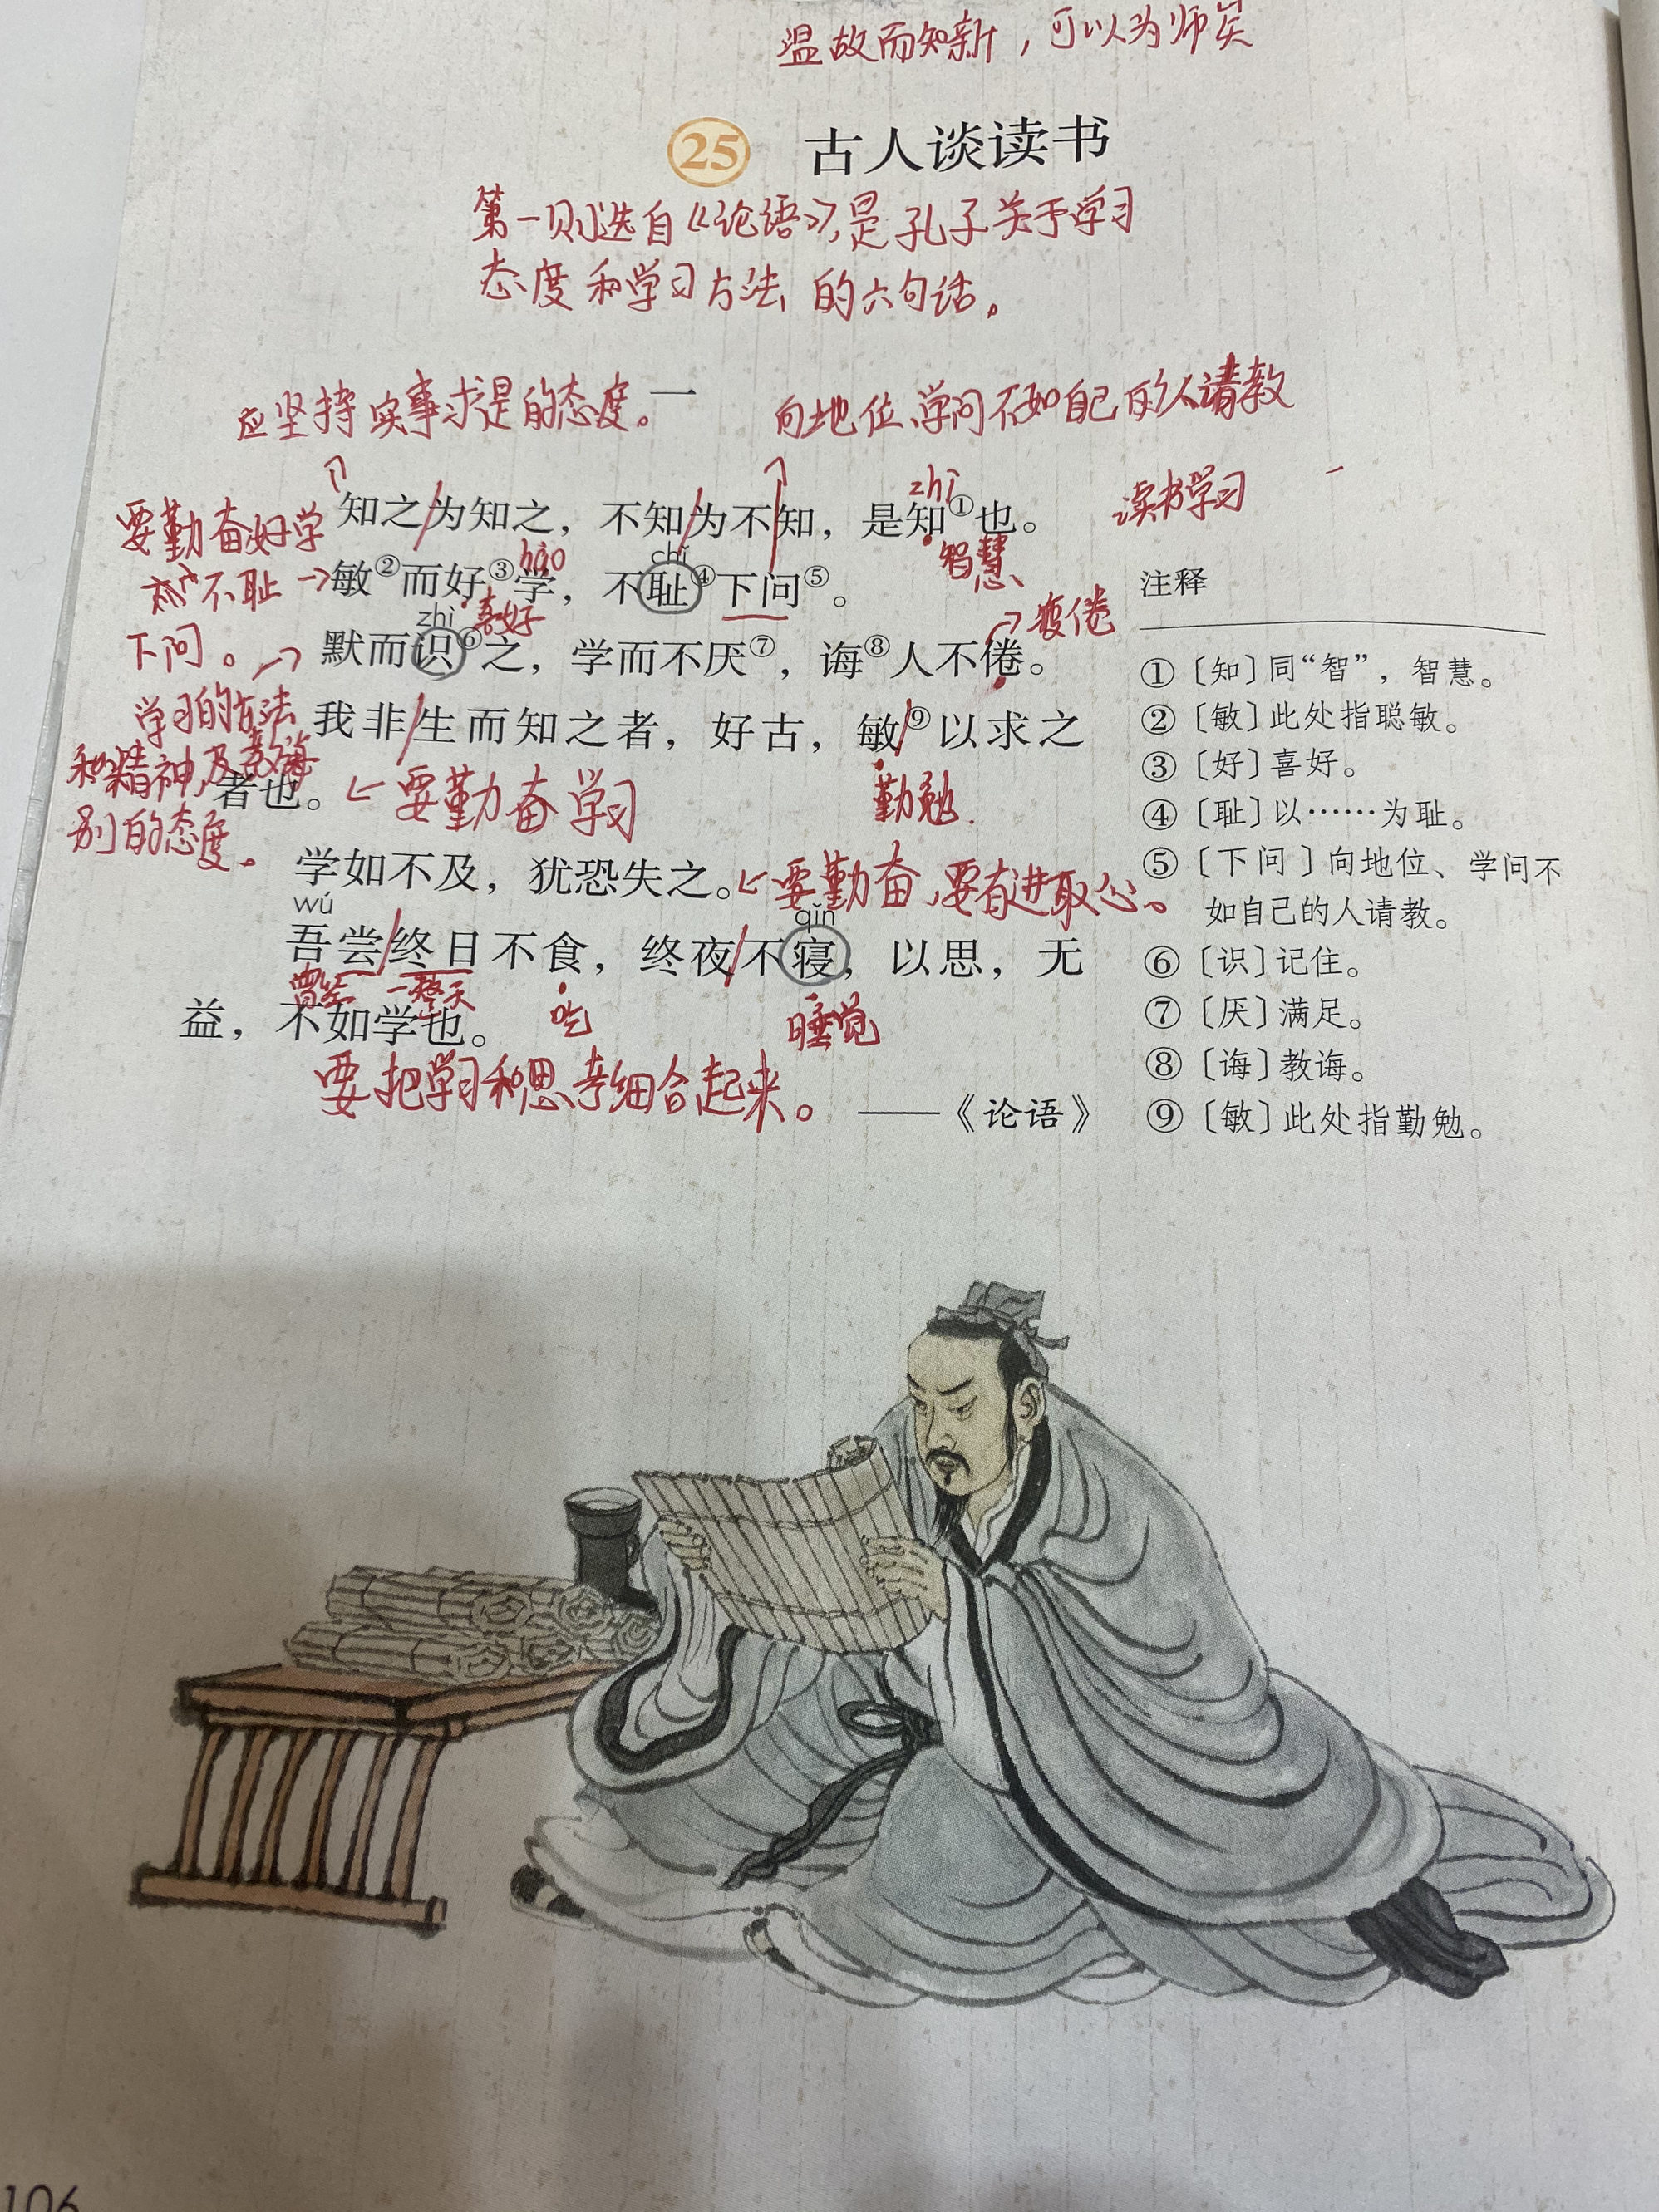 温故而知新，可以为师矣
25 古人谈读书
第一则选自《论语》，是孔子关于学习
态度和学习方法的六句话。
一
应坚持实事求是的态度。
向地位、学问不如自己的人请教
zhì
知之为知之，不知为不知，是知①也。
智慧
读书学习
要勤奋好学
不耻
下问。
hào
chǐ
敏②而好③学，不耻④下问⑤。
喜好
zhì
疲倦
默而识⑥之，学而不厌⑦，诲⑧人不倦。
学习的方法
和精神，及教诲
别的态度。
我非生而知之者，好古，敏⑨以求之
者也。
要勤奋学习
勤勉.
学如不及，犹恐失之。
要勤奋，要有进取心。
wú
qǐn
吾尝终日不食，终夜不寝，以思，无
曾经
一整天
吃
睡觉
益，不如学也。
要把学习和思考结合起来。
——《论语》
注释
①〔知〕同“智”，智慧。
②〔敏〕此处指聪敏。
③〔好〕喜好。
④〔耻〕以……为耻。
⑤〔下问〕向地位、学问不
如自己的人请教。
⑥〔识〕记住。
⑦〔厌〕满足。
⑧〔诲〕教诲。
⑨〔敏〕此处指勤勉。
106